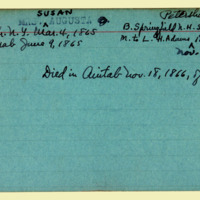 SUSAN Petersha
MRS. AUGUSTA B. Springfield N.H. S
N.Y. Mar. 4, 1865 M. to L. H. Adams
ab June 9, 1865 Nov.
Died in Aintab Nov. 18, 1866, of